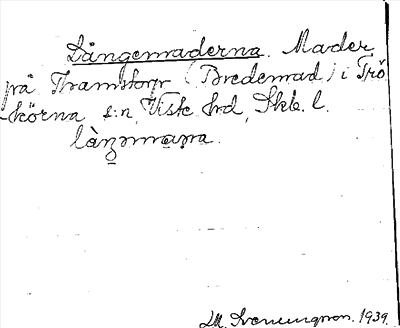 Långemaderna. Mader
på Framstorp (Bredemad) i Trö
-körna s:n, Viste hrd, Skb. l.
làŋəmaɲa.
M. Svenungson. 1939.